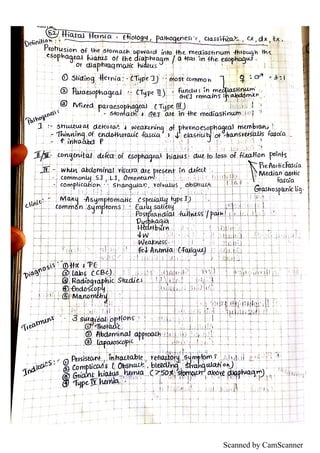 52) Hiatal Hernia - Etiology, pathogenesis, classificat., cx, dx, tx.
Definition:
Protrusion of the stomach upward into the mediastinum through the
esophageal hiatus of the diaphragm / a tear in the esophageal
or diaphragmatic hiatus
① Sliding Hernia: (Type I) most common
② Paraesophageal : (Type II) Fundus in mediastinum
GEJ remains in abdomen
③ Mixed paraesophageal (Type III)
- Stomach + GEJ are in the mediastinum
Pathogenesis
I : - structural deteriorat. & weakening of phrenoesophageal membran.
- Thinning of endothoracic fascia & ↓ elasticity of transversalis fascia
- ↑ intraabd P
II/III congenital defect of esophageal hiatus due to loss of fixation points
Pre Aortic fascia
Median aortic
fascia
Gastrosplenic lig.
IV - when abdominal viscera are present in defect
- commonly SI, LI, Omentum
- complication : Strangulat., volvulus, obstruct
Clinic:
- Many Asymptomatic (specially type I)
common symptoms : Early satiety
Postprandial fullness / pain
Dysphagia
Heartburn
↓W
Weakness
Fe↓ Anemia (Fatigue)
Diagnosis
① Hx & PE
② Labs (CBC)
③ Radiographic Studies
④ Endoscopy
⑤ Manometry
Treatment
3 surgical options
① Thoracic
② Abdominal approach
③ Laparoscopic
Indicats:
① Persistant, intractable, refractory symptoms
② Complicats (Obstruct, bleeding, strangulation)
③ Giant hiatus hernia (>50% stomach above diaphragm)
④ Type II hernia
Scanned by CamScanner